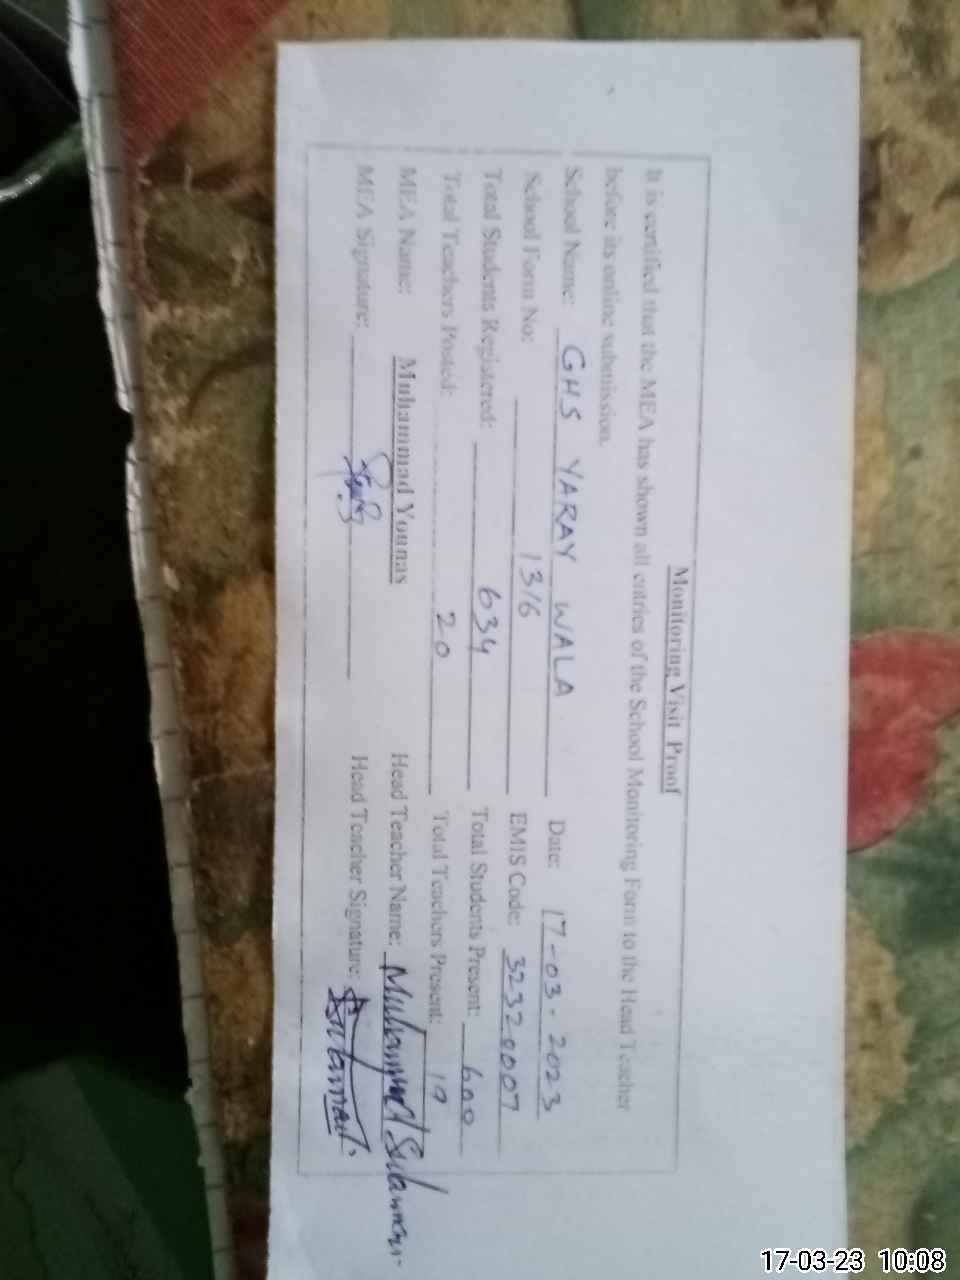 Monitoring Visit Proof
It is certified that the MEA has shown all entries of the School Monitoring Form to the Head Teacher
before its online submission.
School Name: GHS YARAY WALA Date: 17-03-2023
School Form No: 1316 EMIS Code: 32320007
Total Students Registered: 634 Total Students Present: 600
Total Teachers Posted: 20 Total Teachers Present: 19
MEA Name: Muhammad Younas Head Teacher Name: Muhammad Sulaman
MEA Signature: Head Teacher Signature:
17-03-23 10:08